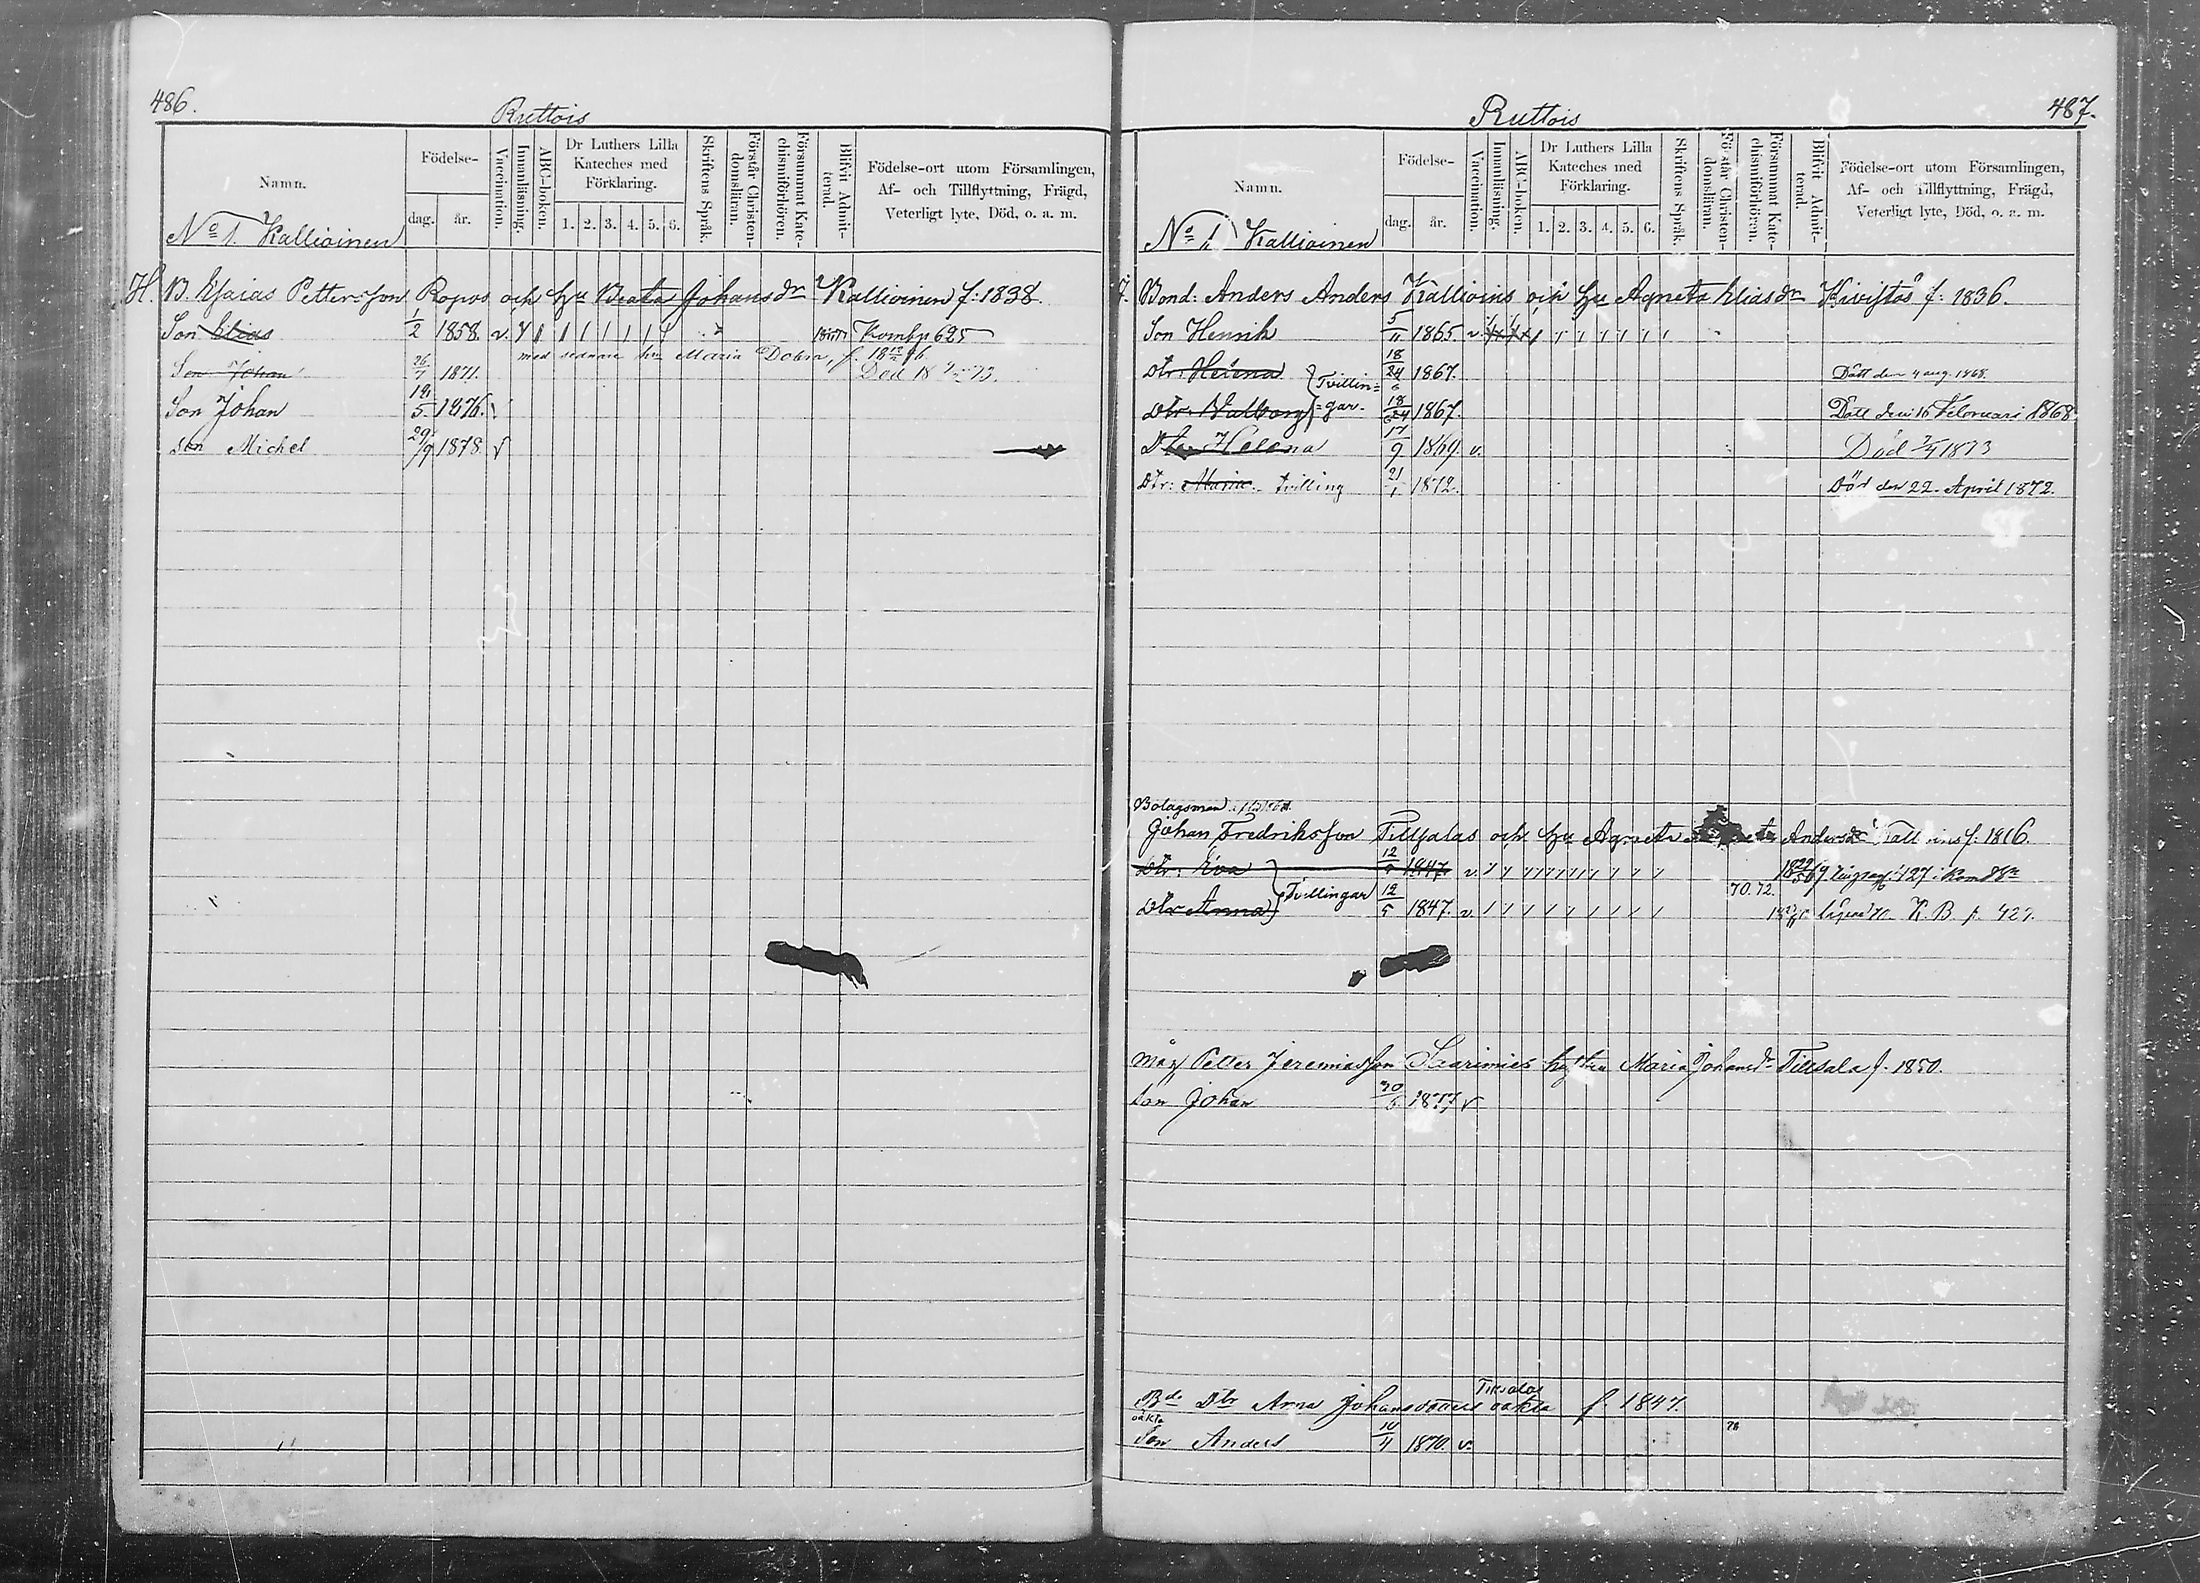 486.
Ruttois
Namn.
Födelse-
dag. år.
Vaccination.
Innanläsning.
ABC-boken.
Dr Luthers Lilla Kateches med Förklaring.
1. 2. 3. 4. 5. 6.
Skriftens Språk.
Förstår Christendomsläran.
Försummat Katechismiförhören.
Blifvit Admitterad.
Födelse-ort utom Församlingen,
Af- och Tillflyttning, Frägd,
Veterligt lyte, Död, o. a. m.
No 1. Kallioinen
B. Esaias Pettersson Ropos och hu Beata Johansdr Kallioinen f: 1838.
Son Elias 1/2 1858. v. Kombp 625
med sednare hu Maria
Son Johan 26/7 1871. Död
Son Johan 5 1876.
son Michel 29/9 1878. v
487.
Ruttois
Namn.
Födelse-
dag. år.
Vaccination.
Innanläsning.
ABC-boken.
Dr Luthers Lilla Kateches med Förklaring.
1. 2. 3. 4. 5. 6.
Skriftens Språk.
Förstår Christendomsläran.
Försummat Katechismiförhören.
Blifvit Admitterad.
Födelse-ort utom Församlingen,
Af- och Tillflyttning, Frägd,
Veterligt lyte, Död, o. a. m.
No 1. Kallioinen
Bond: Anders Anders Kallioins och hu Agneta Eliasdr Kivistös f: 1836.
Son Henrik 5/11 1865. v.
Dtr: Helena Tvillin= 1867. Dött den 4 aug. 1868.
Dtr: Valborg =gar. 1867. Dött den 16 Februari 1868.
Dtr Helena 17/9 1869. v. Död 1873
Dtr: Maria tvilling 21/1 1872. Död den 22. April 1872.
Bolagsman
Johan Fredriksson Tillsalas och hu Agneta Andersdr Kallioins f. 1816.
Dtr: Eva 12/5 1847. v.
Tvillingar
70. 72.
Dtr Anna 12/5 1847. v. K. B. p. 427.
måg Petter Jeremiasson Saarimies hustru Maria Johansdr Tillsala f. 1850.
son Johan 30/6 1877 v
Bde Dtr Anna Johansdotter oäkta f. 1847.
oäkta
Son Anders 1870. v.
78